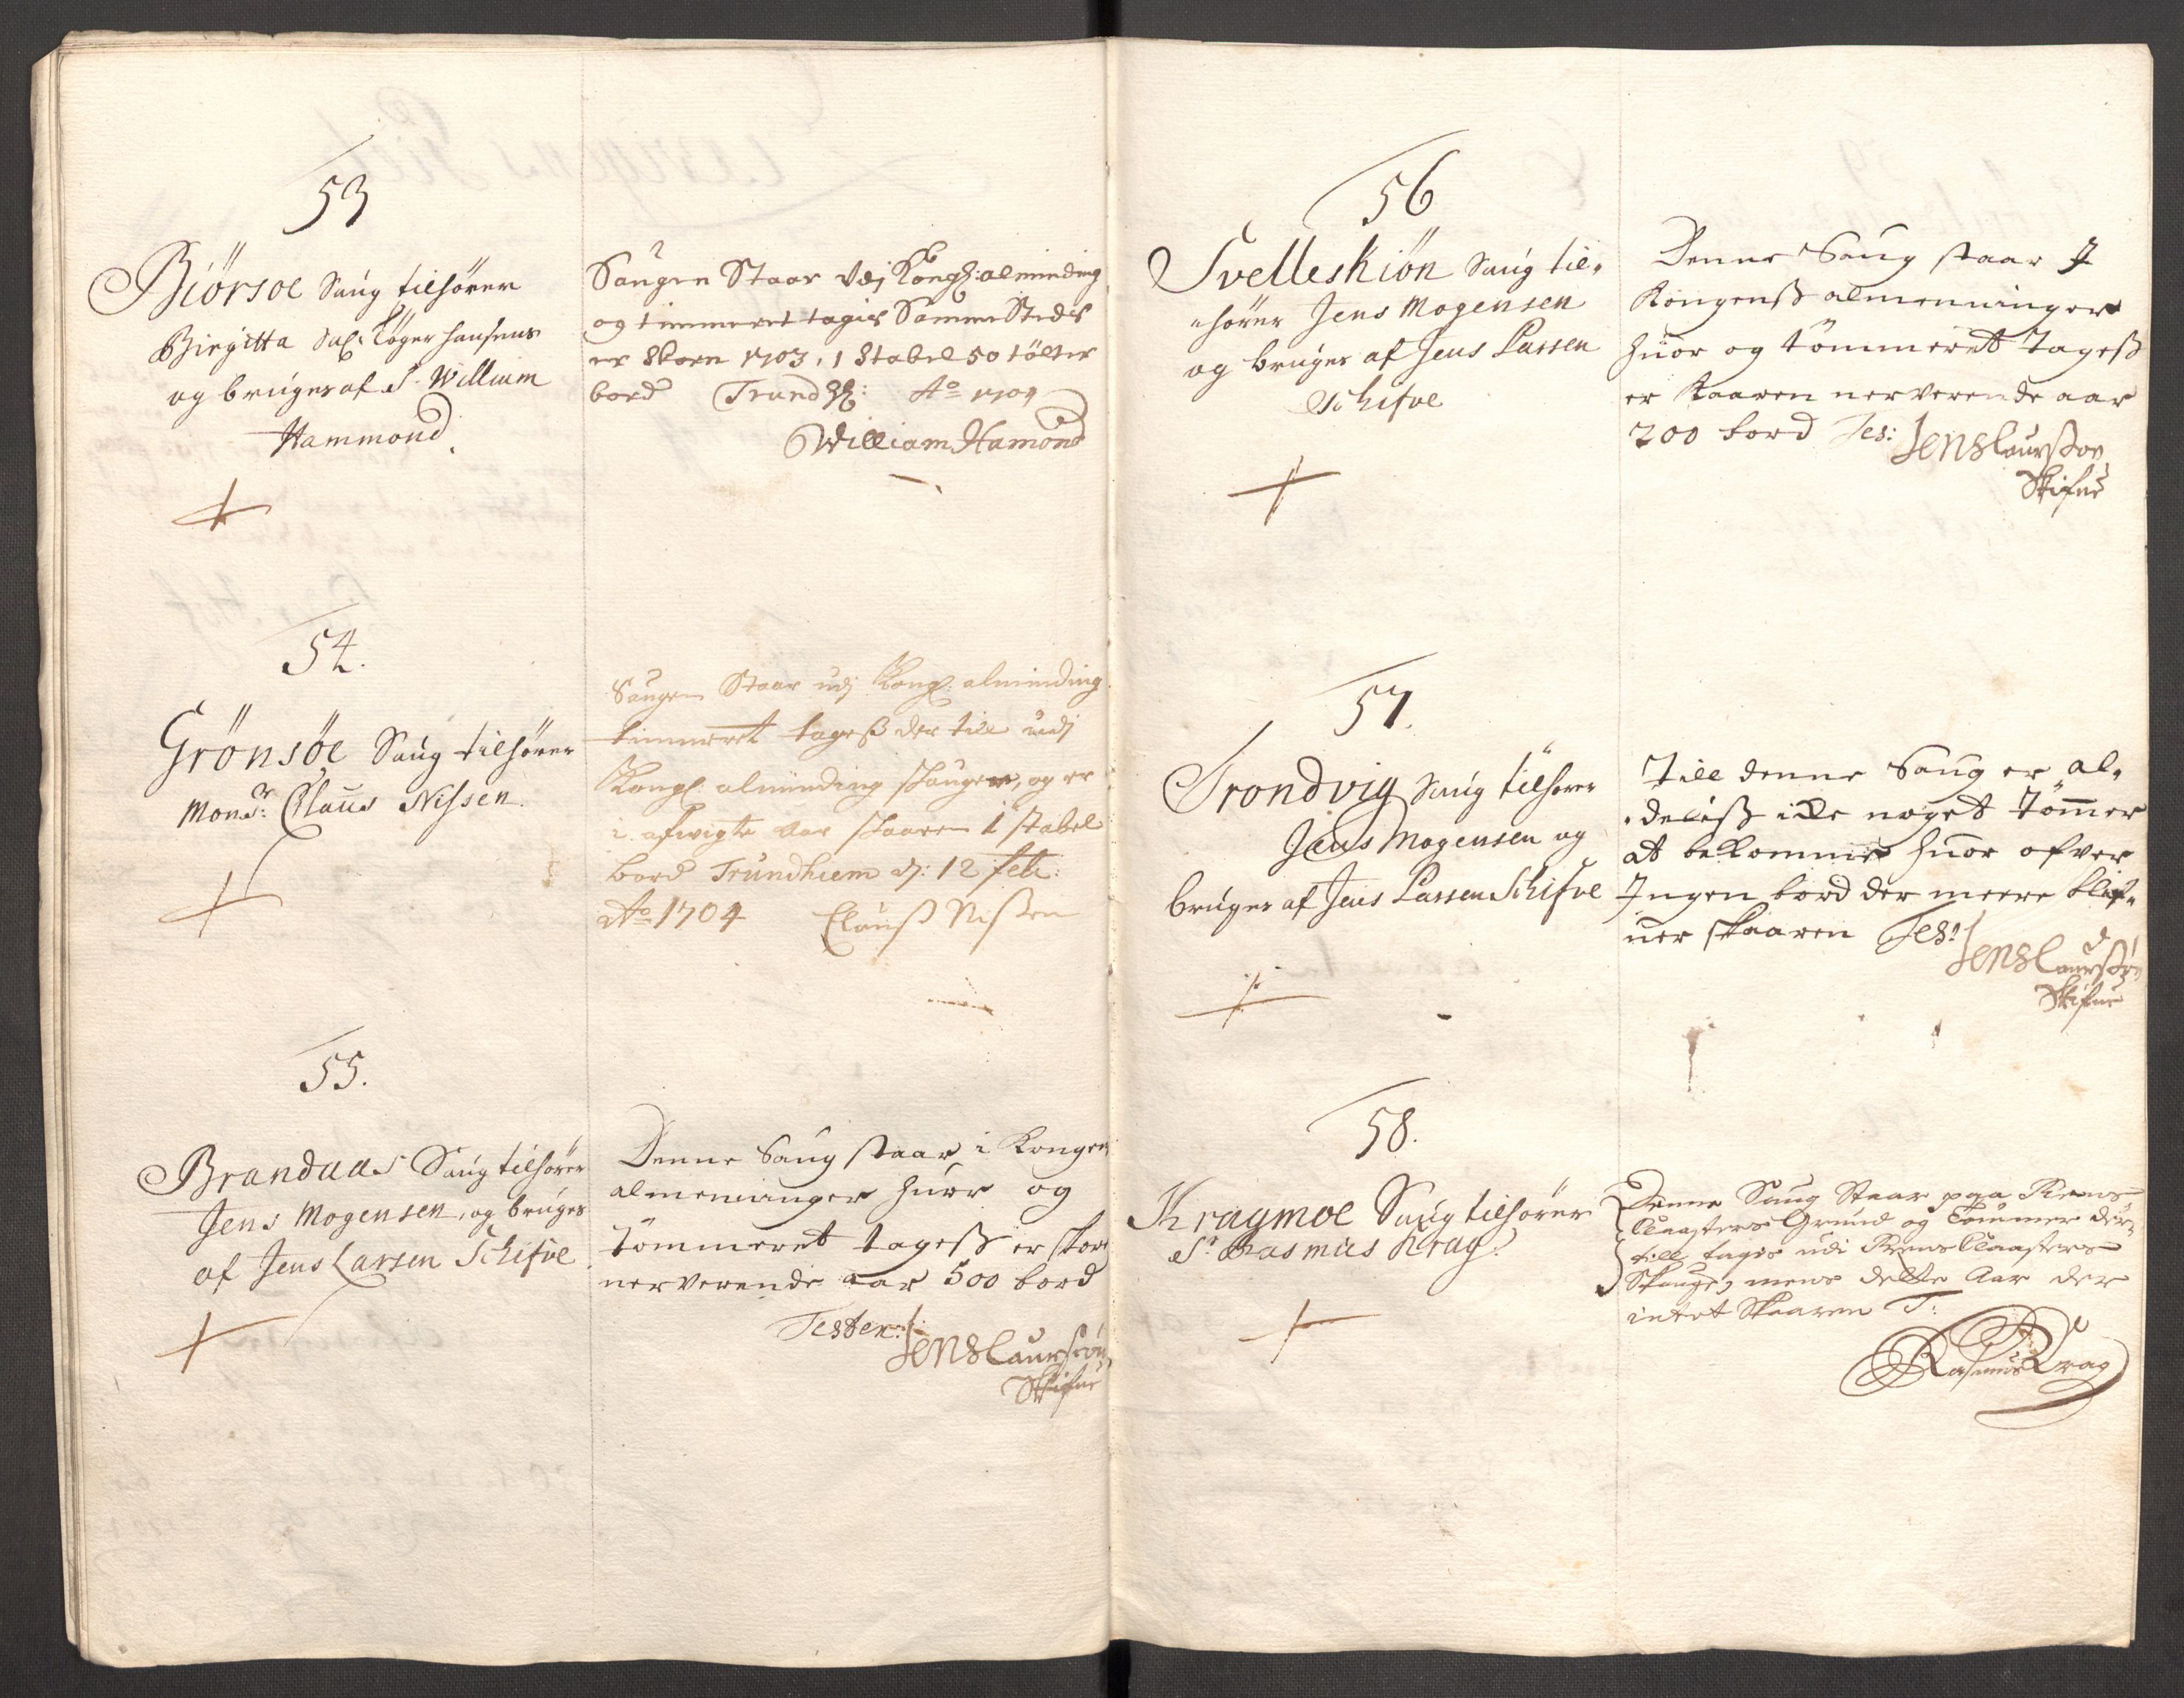 53
Biörsoe Saug tilhörer
Birgitta Sal: Töger Hansens
og bruges af S. William
Hammond.
Saugen Staar Udj Kongl: alminding
og timmeret tagis Samme Steds
er skoren 1703, 1 Stabel 50 tölter
bord Trundhl: Ao 1704
William Hamond
54.
Grönsöe Saug tilhörer
Monsr: Claus Nissen.
Saugen Staar udj Kongl: alminding
timmeret tageß der till udj
Kongl alminding skaugen, og er
i afvigte Aar skaaren 1 stabel
bord Trundhiem d: 12 feb:
Ao 1704 Clauß Nißen
55.
Brandaas Saug tilhörer
Jens Mogensen, og bruges
af Jens Larsen Schifve
Denne Saug staar i Kongens
almeninger huor og
Tömmeret tageß er skore
nerverende aar 500 bord
Tester: Jens Laursøn
Skifue
56
Svelleskiön Saug til-
-hörer Jens Mogensen
og bruges af Jens Larsen
Schifve
Denne Saug staar J
Kongenß almenninger
huor og tömmeret tageß
er skaaren nerverende aar
200 bord Tes: Jens Laurßøn
Skifue
57.
Trondvig Saug tilhörer
Jens Mogensen og
bruges af Jens Larsen Schifve
Till denne Saug er al-
-deliß icke noget Tömmer
at bekomme huor ofver
Jngen bord der meere blif-
uer skaaren Test
Jens Laurßøn
Skifue
58.
Kragmoe Saug tilhörer
Sr Rasmus Krag.
Denne Saug Staar paa Reins
Claasters Grund og Tömmer der-
till tages udi Reins Claasters
Skauge, mens dette Aar der
intet Skaaren T:
Rasmus Krag